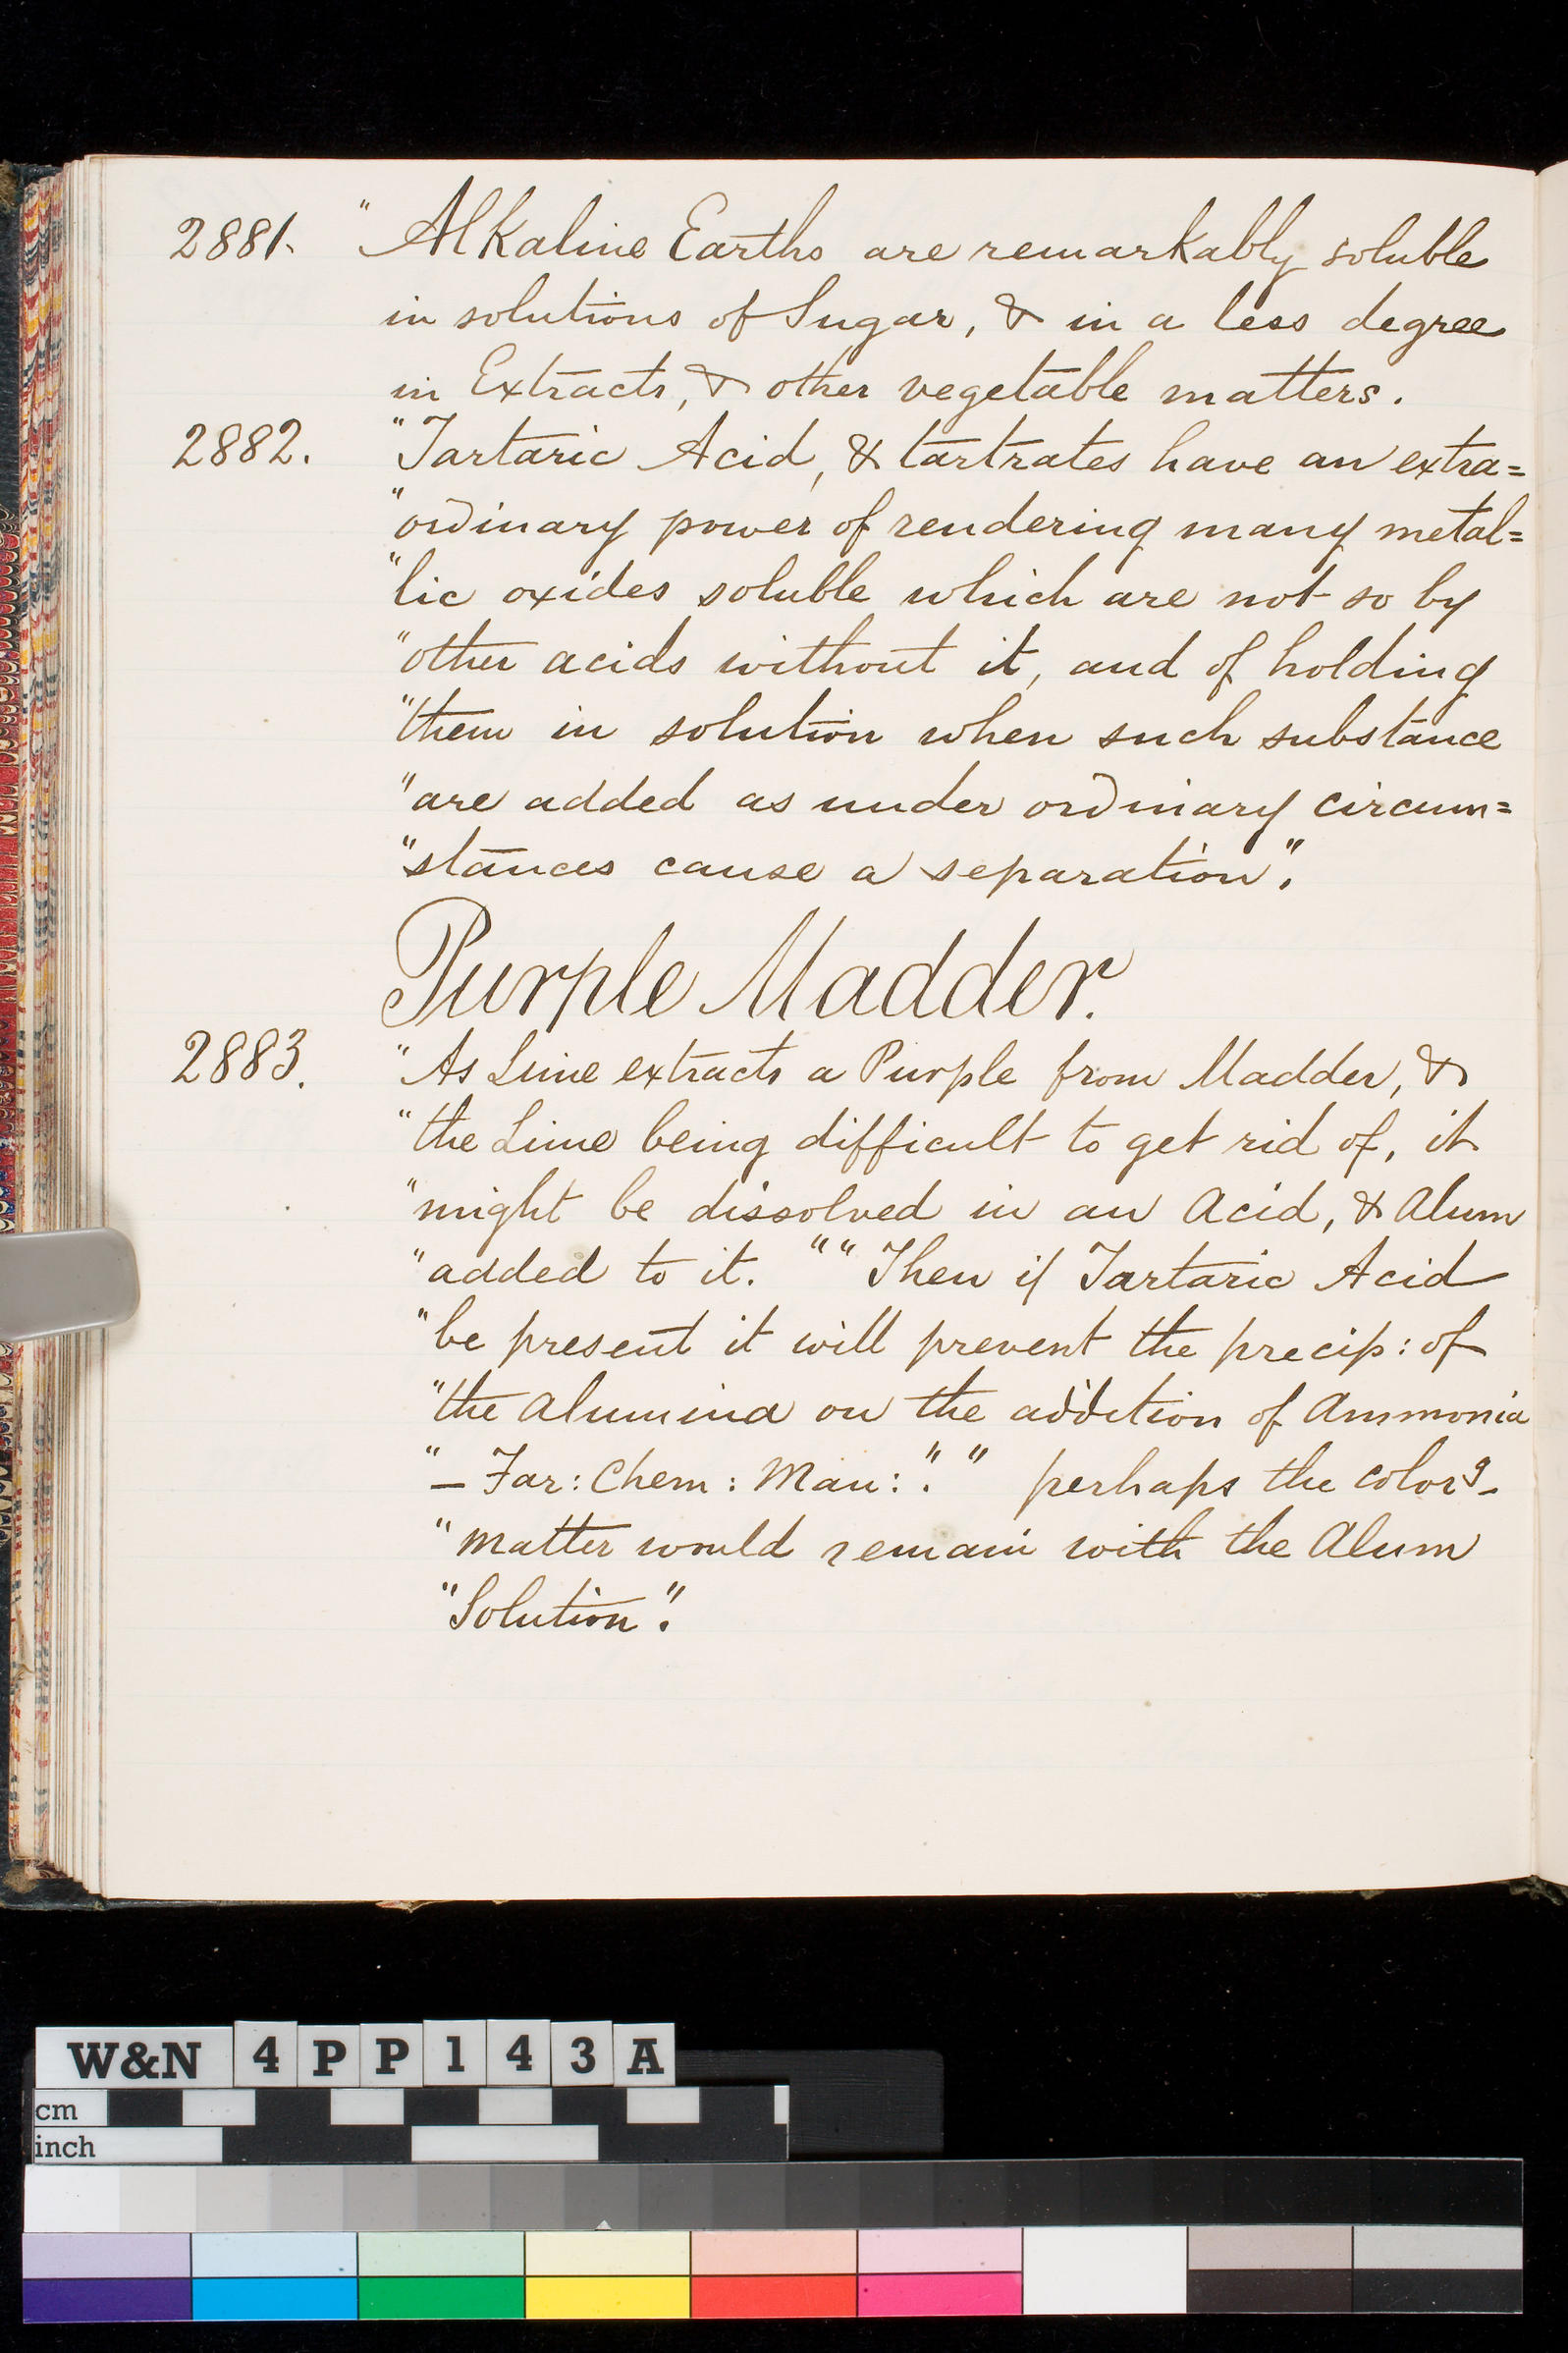 2881. " Alkaline Earths are remarkably soluble
in solutions of Sugar, & in a less degree
in Extracts, & other vegetable matters.
2882. "Tartaric Acid, & tartrates have an extra=
"ordinary power of rendering many metal=
"lic oxides soluble which are not so by
"other acids without it, and of holding
"them in solution when such substance
"are added as under ordinary circum=
"stances cause a separation".
Purple Madder.
2883. "As Lime extracts a Purple from Madder, &
"the Lime being difficult to get rid of, it
"might be dissolved in an Acid, & Alum
"added to it. "" Then if Tartaric Acid
"be present it will prevent the precip: of
"the Alumina on the addition of Ammonia
"– Far: Chem: Man:"." perhaps the colorg-
"matter would remain with the Alum
"Solution".
W&N 4PP143A
cm
inch